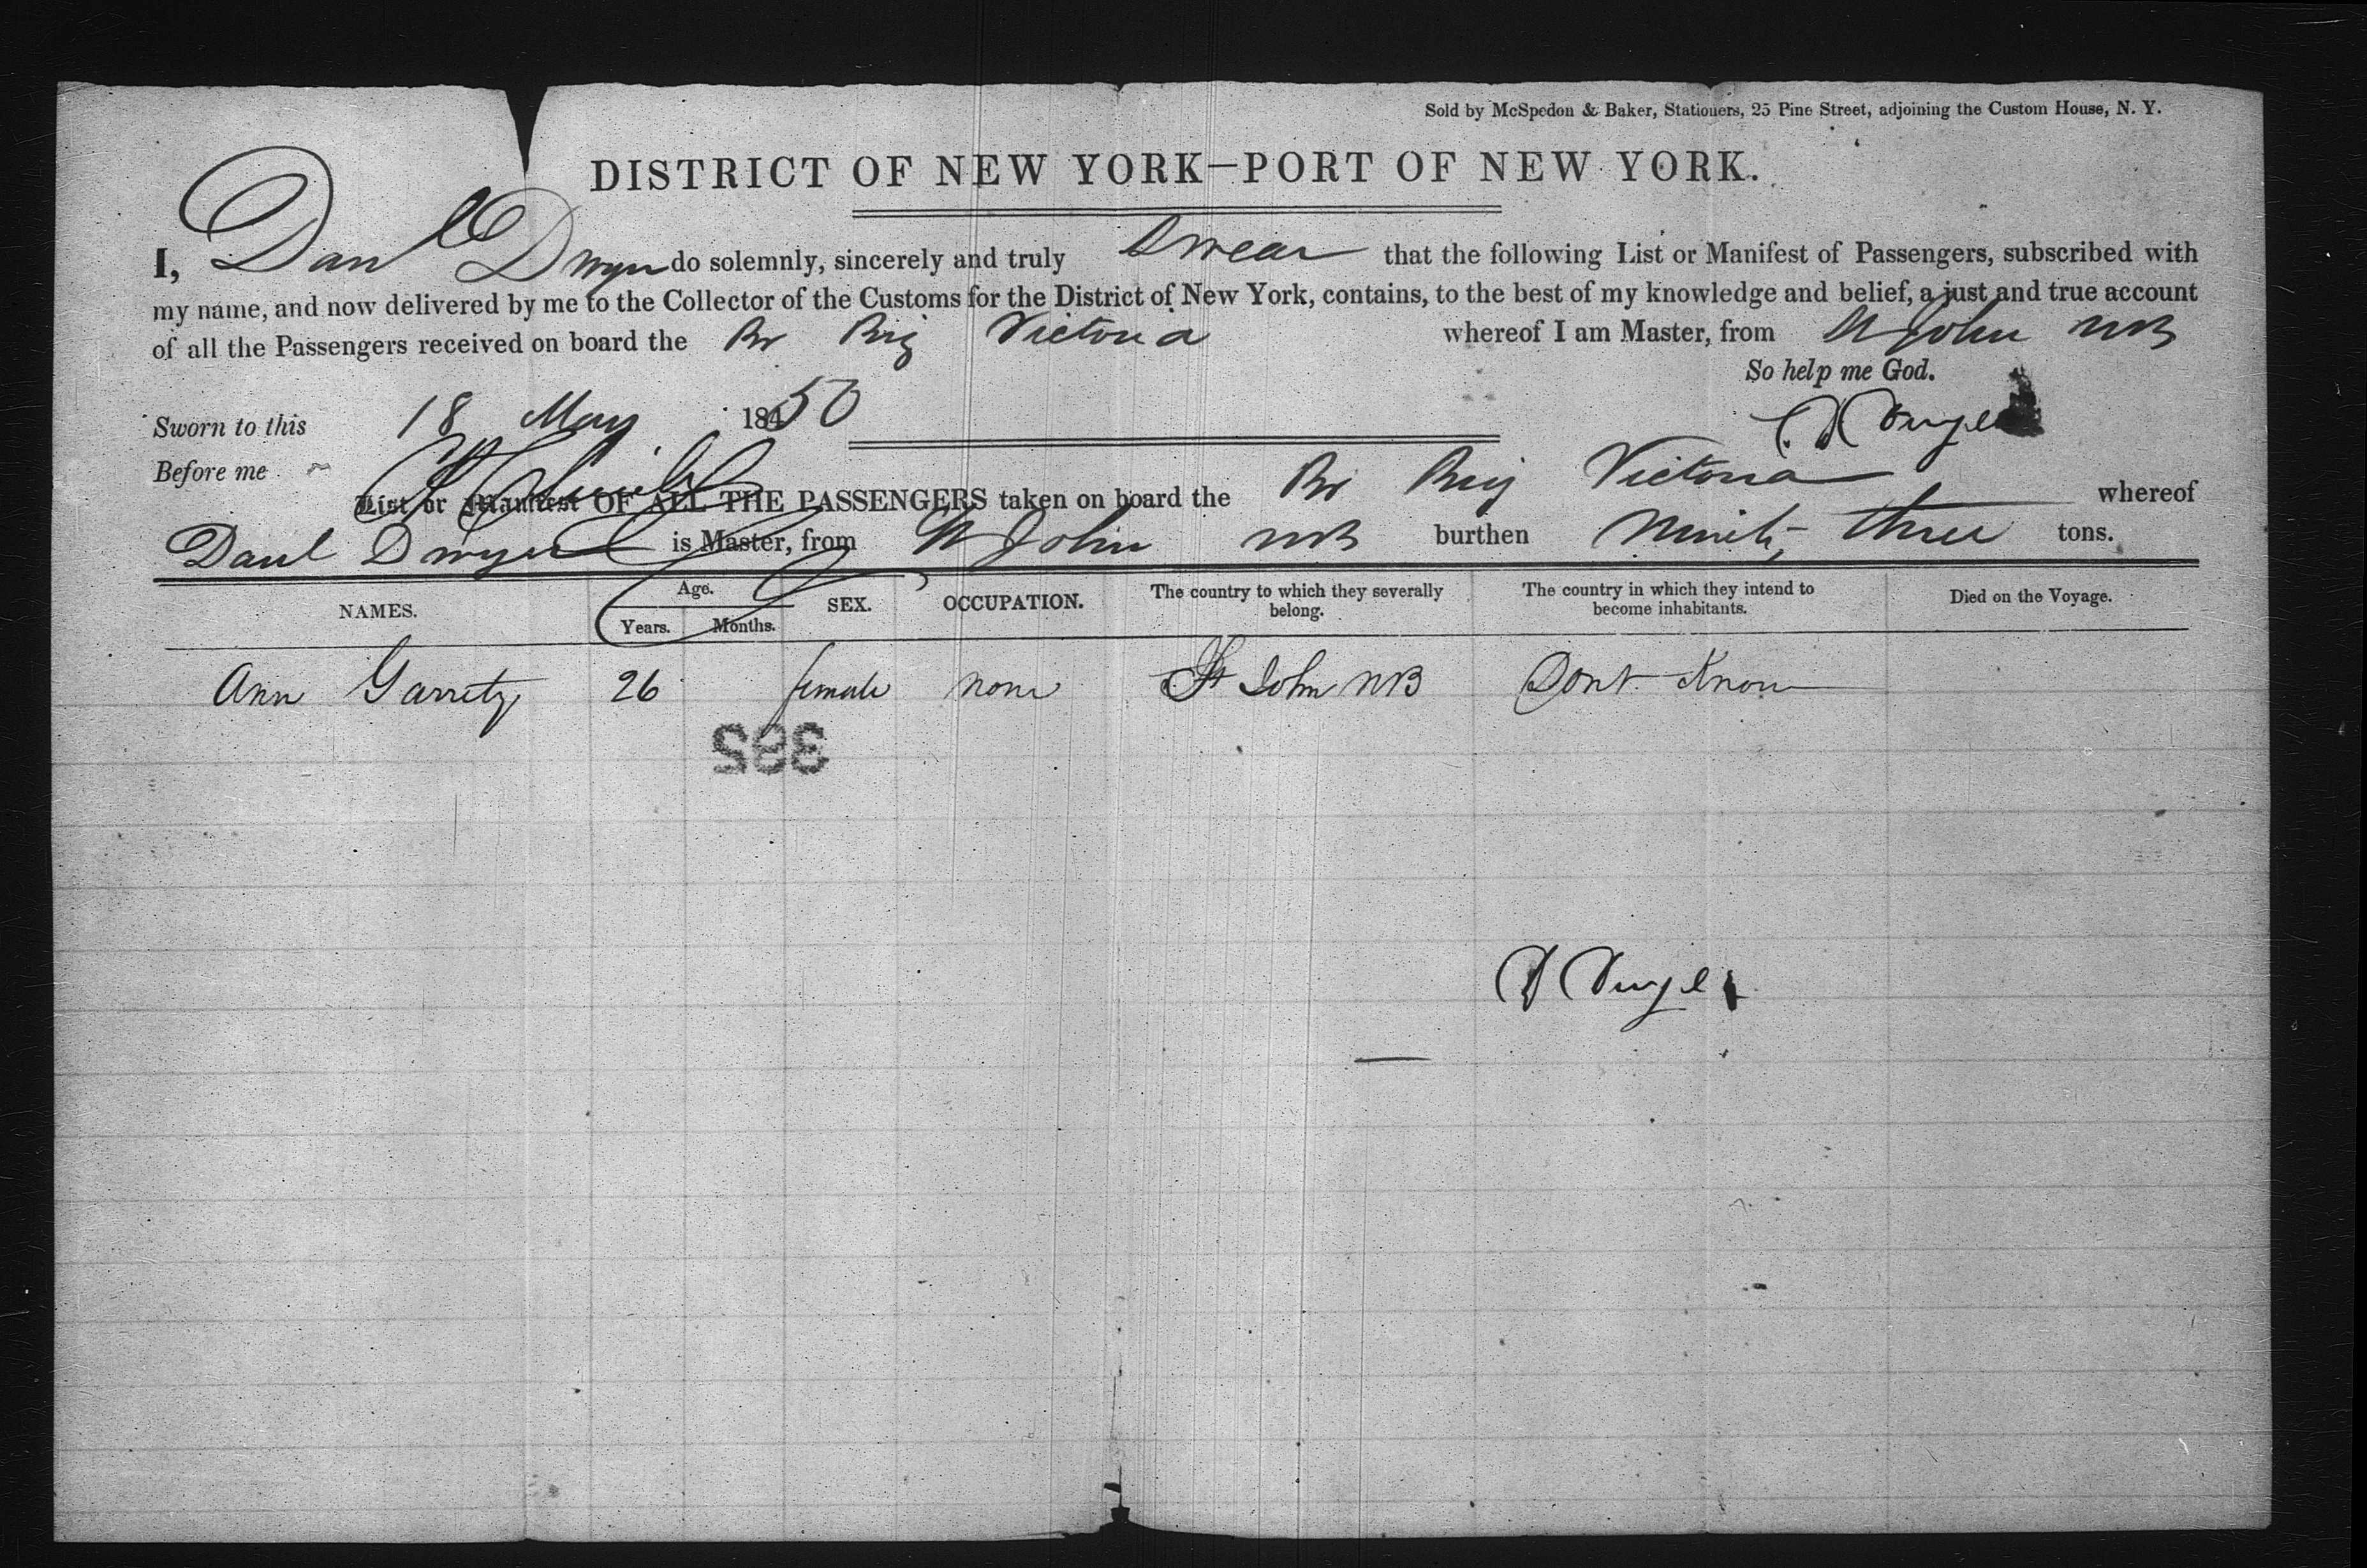 Sold by McSpedon & Baker, Stationers, 25 Pine Street, adjoining the Custom House, N. Y.
DISTRICT OF NEW YORK—PORT OF NEW YORK.
I, Danl Dwyer do solemnly, sincerely and truly Swear that the following List or Manifest of Passengers, subscribed with
my name, and now delivered by me to the Collector of the Customs for the District of New York, contains, to the best of my knowledge and belief, a just and true account
of all the Passengers received on board the Br Brig Victoria whereof I am Master, from St John NB
So help me God.
Sworn to this 18 May 18450
D Dwyer
Before me
List or Manifest OF ALL THE PASSENGERS taken on board the Br Brig Victoria whereof
Danl Dwyer is Master, from St John NB burthen Ninety three tons.
NAMES. Age. Years. Months. SEX. OCCUPATION. The country to which they severally belong. The country in which they intend to become inhabitants. Died on the Voyage.
Ann Garrety 26 female none St John NB Dont Know
385
D Dwyer